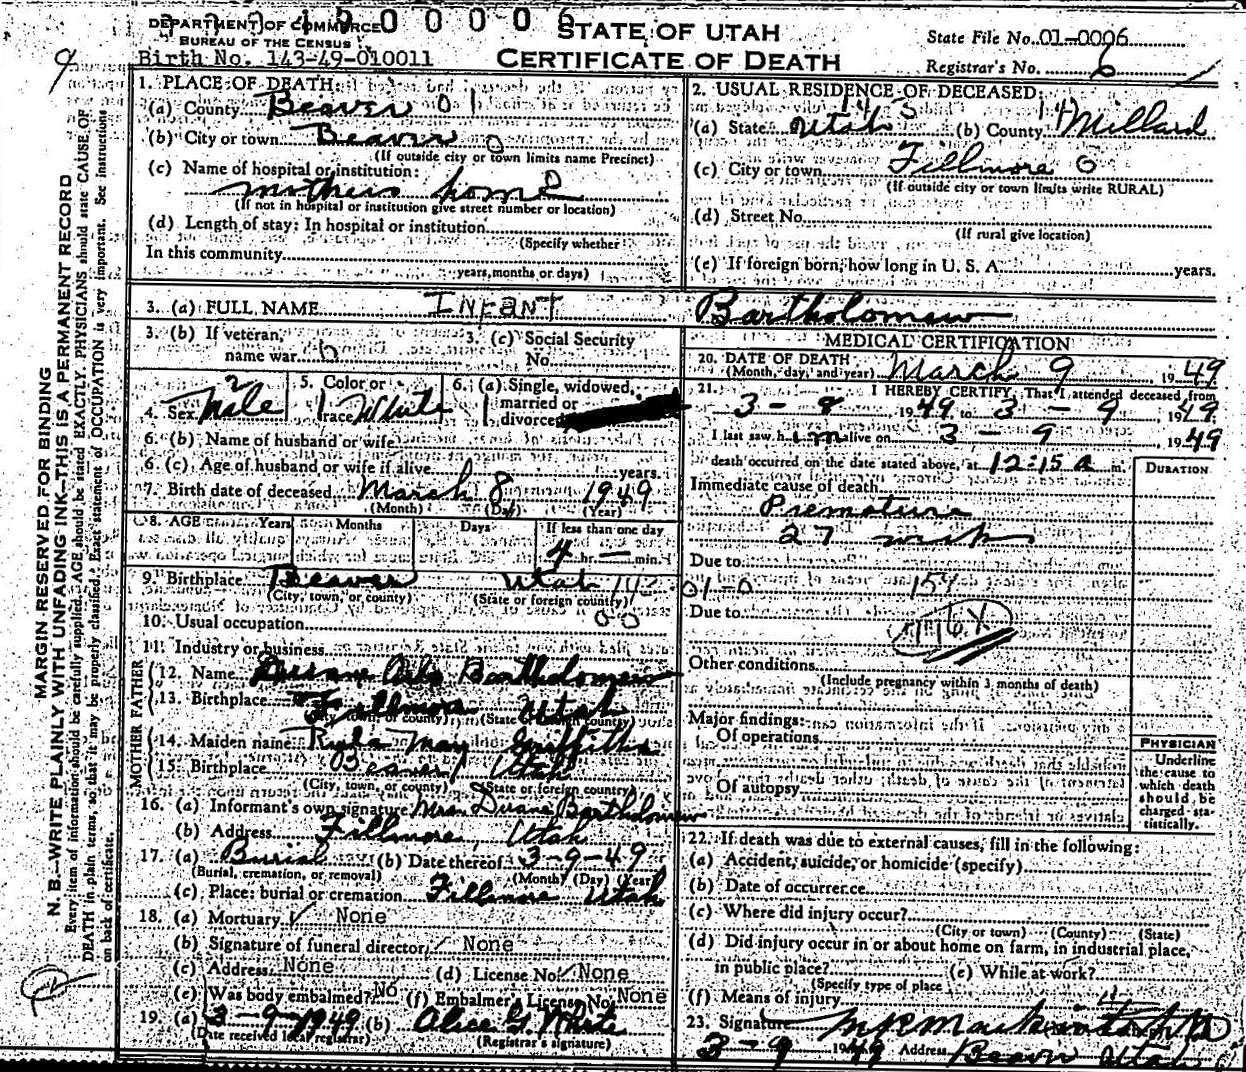 DEPARTMENT OF COMMERCE
BUREAU OF THE CENSUS
Birth No. 143-49-010011
STATE OF UTAH
CERTIFICATE OF DEATH
State File No. 01-0006
Registrar's No. 6
MARGIN RESERVED FOR BINDING
N. B.—WRITE PLAINLY WITH UNFADING INK—THIS IS A PERMANENT RECORD
Every item of information should be carefully supplied. AGE should be stated EXACTLY. PHYSICIANS should state CAUSE OF
DEATH in plain terms, so that it may be properly classified. Exact statement of OCCUPATION is very important. See instructions
on back of certificate.
1. PLACE OF DEATH:
(a) County Beaver 01
(b) City or town Beaver 0
(If outside city or town limits name Precinct)
(c) Name of hospital or institution:
mothers home
(If not in hospital or institution give street number or location)
(d) Length of stay: In hospital or institution
(Specify whether
In this community
years, months or days)
2. USUAL RESIDENCE OF DECEASED:
(a) State Utah 143 (b) County 14 Millard
(c) City or town Fillmore 0
(If outside city or town limits write RURAL)
(d) Street No.
(If rural give location)
(e) If foreign born, how long in U. S. A. years.
3. (a) FULL NAME INFANT Bartholomew
3. (b) If veteran, name war
3. (c) Social Security No.
4. Sex Male
5. Color or race White
6. (a) Single, widowed, married or divorced
6. (b) Name of husband or wife
6. (c) Age of husband or wife if alive years.
7. Birth date of deceased March 8 1949
(Month) (Day) (Year)
8. AGE Years Months Days If less than one day
4 hr. — min.
9. Birthplace Beaver Utah 14-01-0
(City, town, or county) (State or foreign country)
10. Usual occupation
11. Industry or business
FATHER
12. Name Duane Arlo Bartholomew
13. Birthplace Fillmore Utah
(City, town, or county) (State or foreign country)
MOTHER
14. Maiden name Ryda May Griffiths
15. Birthplace Beaver Utah
(City, town, or county) State or foreign country)
16. (a) Informant's own signature Mrs. Duane Bartholomew
(b) Address Fillmore, Utah
17. (a) Burial (b) Date thereof 3-9-49
(Burial, cremation, or removal) (Month) (Day) (Year)
(c) Place: burial or cremation Fillmore Utah
18. (a) Mortuary None
(b) Signature of funeral director None
(c) Address None (d) License No. None
(e) Was body embalmed? No (f) Embalmer's License No. None
19. (a) 3-9-1949 (b) Alice G. White
Date received local registrar) (Registrar's signature)
MEDICAL CERTIFICATION
20. DATE OF DEATH March 9 1949
(Month, day, and year)
21. I HEREBY CERTIFY, That I attended deceased from
3-8 1949 to 3-9 1949
I last saw him alive on 3-9 1949
death occurred on the date stated above, at 12:15 a m.
DURATION
Immediate cause of death
Premature
27 week
Due to
159
Due to
776X
Other conditions
(Include pregnancy within 3 months of death)
Major findings:
Of operations
Of autopsy
PHYSICIAN
Underline
the cause to
which death
should be
charged sta-
tistically.
22. If death was due to external causes, fill in the following:
(a) Accident, suicide, or homicide (specify)
(b) Date of occurrence
(c) Where did injury occur?
(City or town) (County) (State)
(d) Did injury occur in or about home on farm, in industrial place,
in public place? (e) While at work?
(Specify type of place
(f) Means of injury
23. Signature
3-9 1949 Address Beaver Utah